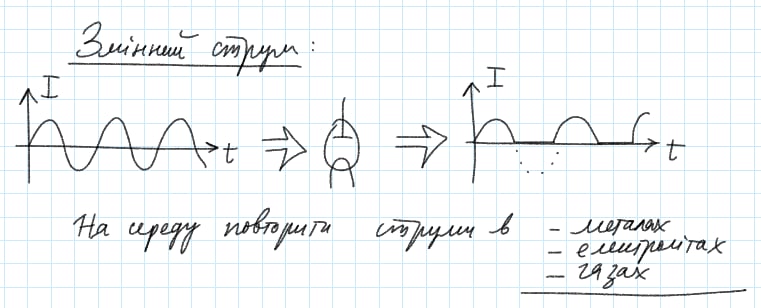 Змінний струм:
I
t
I
t
На середу повторити струми в - металах
- електролітах
- газах